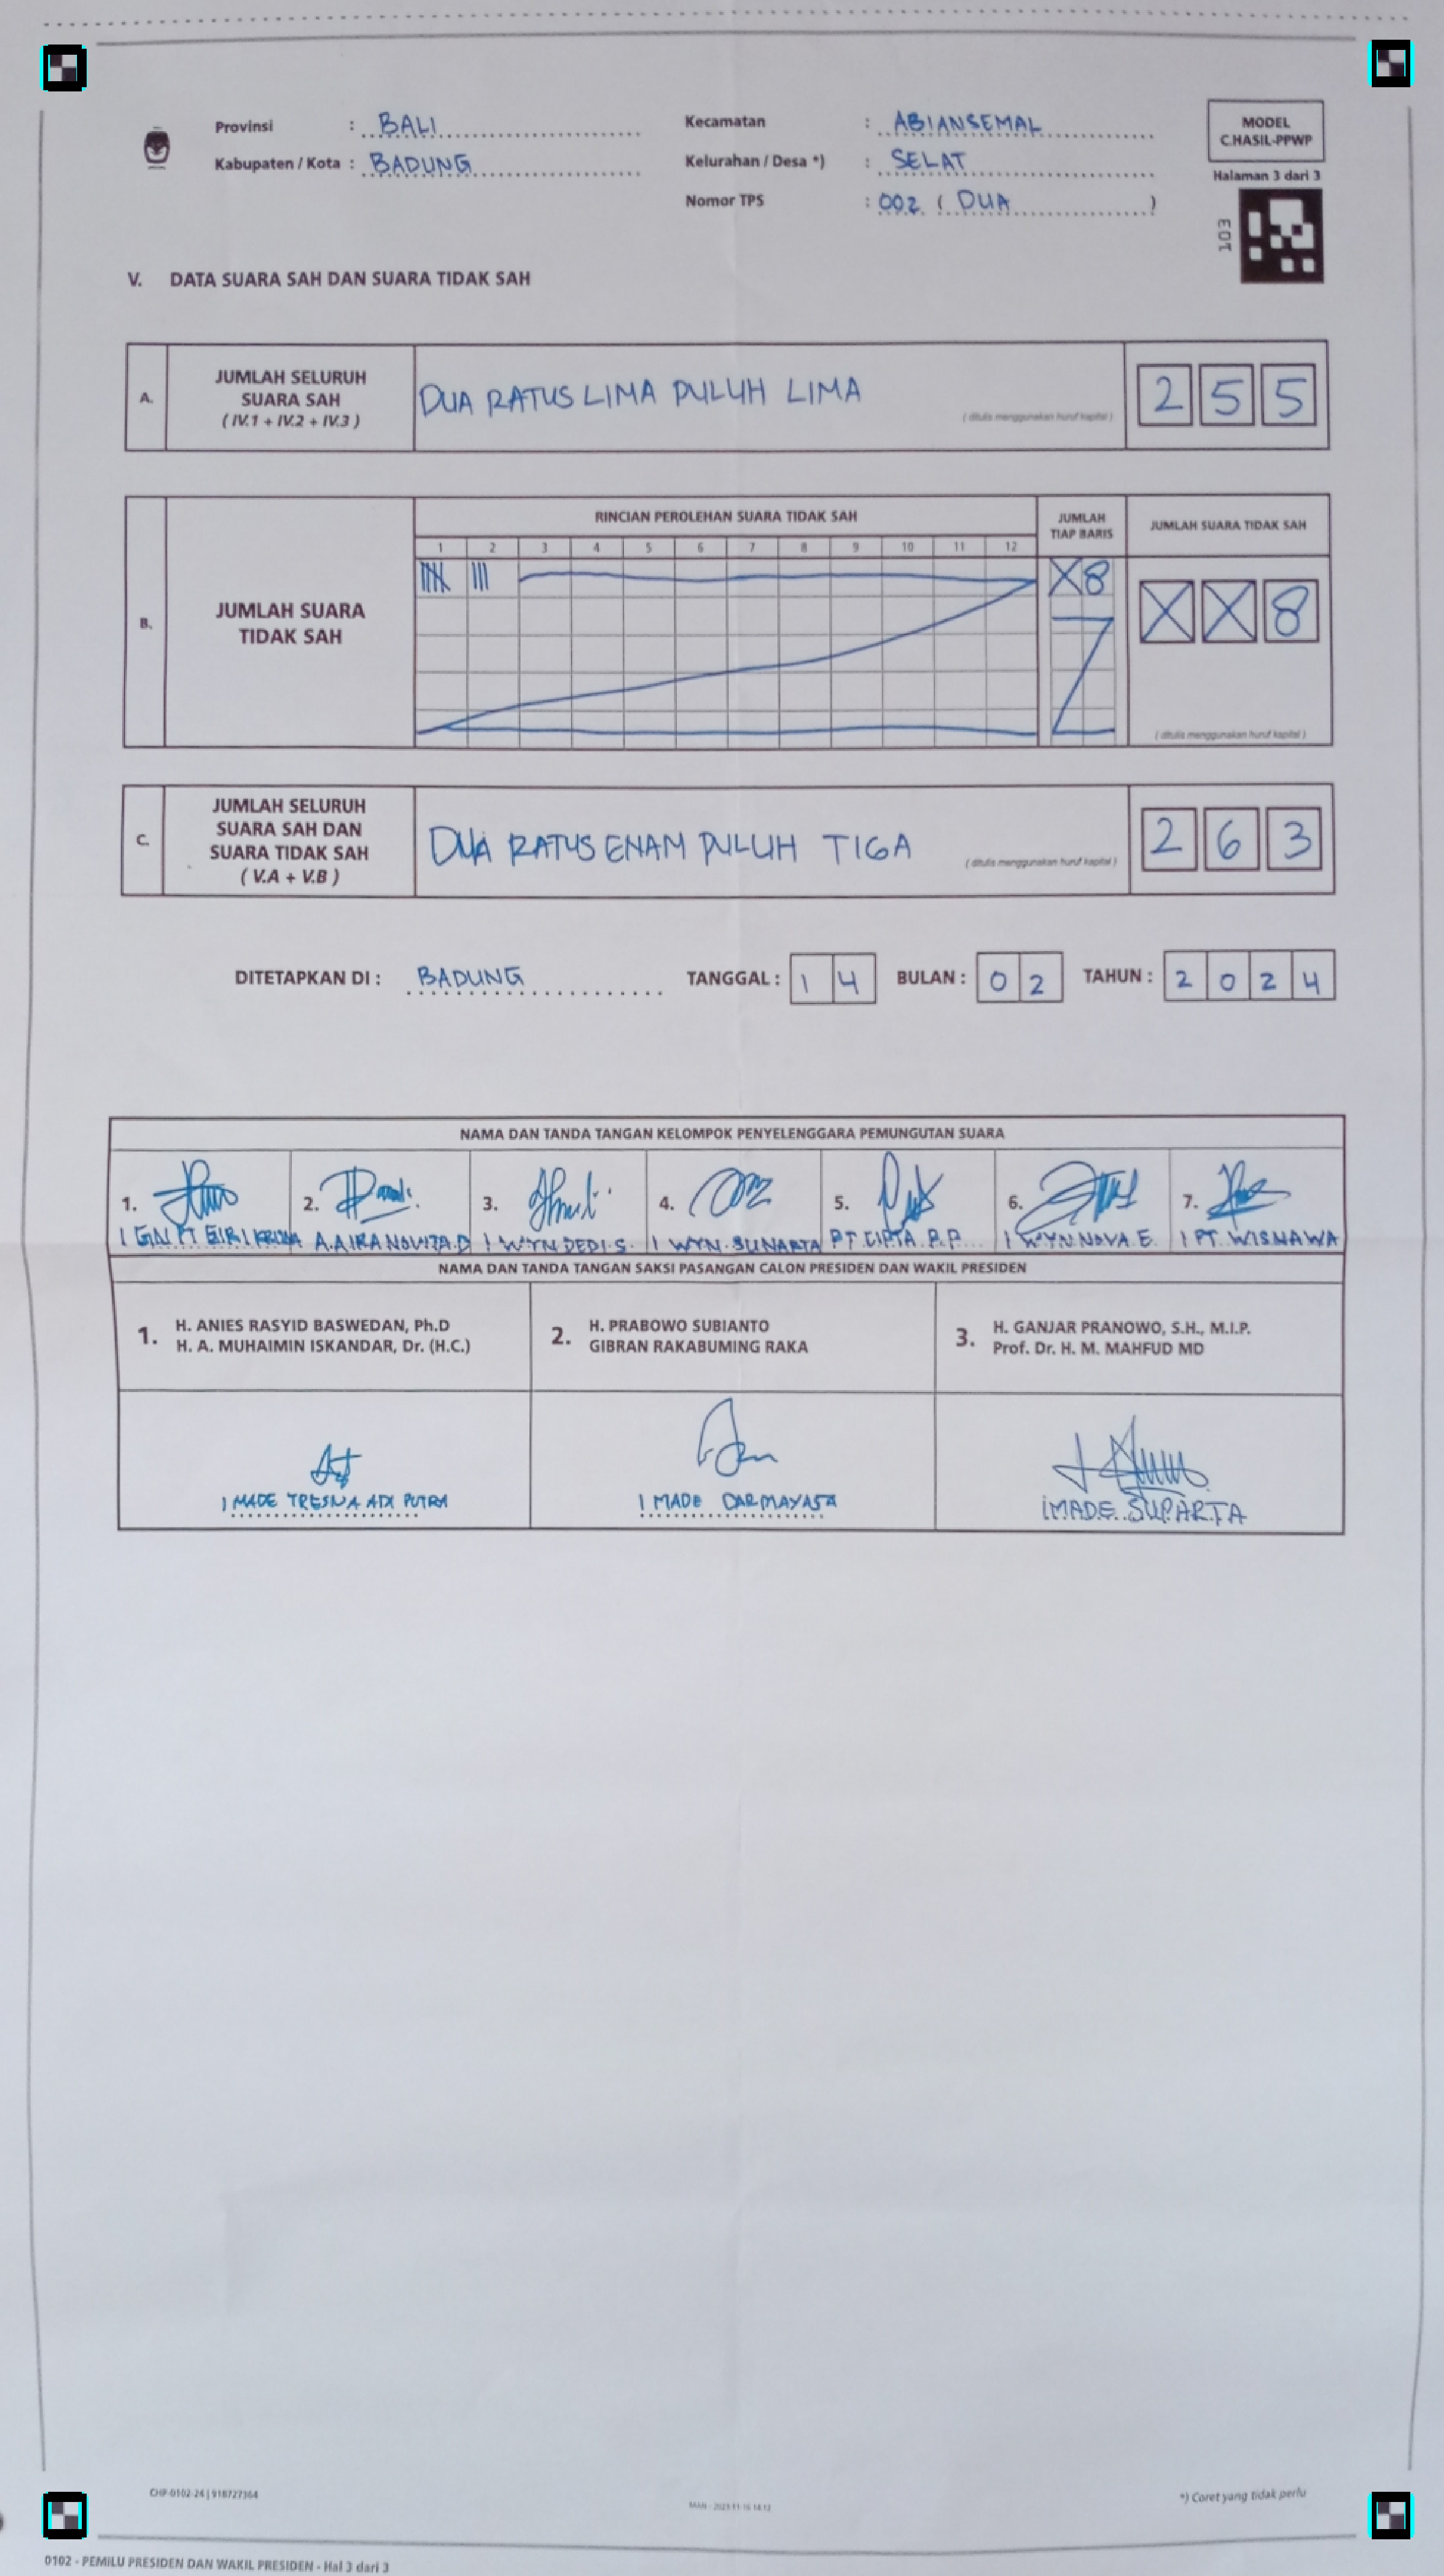 Provinsi : BALI Kecamatan : ABIANSEMAL
Kabupaten / Kota : BADUNG Kelurahan / Desa *) : SELAT
Nomor TPS : 002 ( DUA )
MODEL
C.HASIL-PPWP
Halaman 3 dari 3
103
V. DATA SUARA SAH DAN SUARA TIDAK SAH
A.
JUMLAH SELURUH
SUARA SAH
( IV.1 + IV.2 + IV.3 )
DUA RATUS LIMA PULUH LIMA
( ditulis menggunakan huruf kapital )
2 5 5
B.
JUMLAH SUARA
TIDAK SAH
RINCIAN PEROLEHAN SUARA TIDAK SAH
1 2 3 4 5 6 7 8 9 10 11 12
JUMLAH
TIAP BARIS
X8
JUMLAH SUARA TIDAK SAH
X X 8
( ditulis menggunakan huruf kapital )
C.
JUMLAH SELURUH
SUARA SAH DAN
SUARA TIDAK SAH
( V.A + V.B )
DUA RATUS ENAM PULUH TIGA
( ditulis menggunakan huruf kapital )
2 6 3
DITETAPKAN DI : BADUNG TANGGAL : 1 4 BULAN : 0 2 TAHUN : 2 0 2 4
NAMA DAN TANDA TANGAN KELOMPOK PENYELENGGARA PEMUNGUTAN SUARA
1. 2. 3. 4. 5. 6. 7.
I GN PT A.A IRA NOVITA.D I WYN DEDI.S. I WYN. SUNARTA PT CIPTA P.P I WYN NOVA E. I PT. WISNAWA
NAMA DAN TANDA TANGAN SAKSI PASANGAN CALON PRESIDEN DAN WAKIL PRESIDEN
1. H. ANIES RASYID BASWEDAN, Ph.D
H. A. MUHAIMIN ISKANDAR, Dr. (H.C.)
2. H. PRABOWO SUBIANTO
GIBRAN RAKABUMING RAKA
3. H. GANJAR PRANOWO, S.H., M.I.P.
Prof. Dr. H. M. MAHFUD MD
I MADE TRESNA ADI PUTRA
I MADE DARMAYASA
I MADE SUPARTA
CHF-0102-24 | 918727364
*) Coret yang tidak perlu
0102 - PEMILU PRESIDEN DAN WAKIL PRESIDEN - Hal 3 dari 3